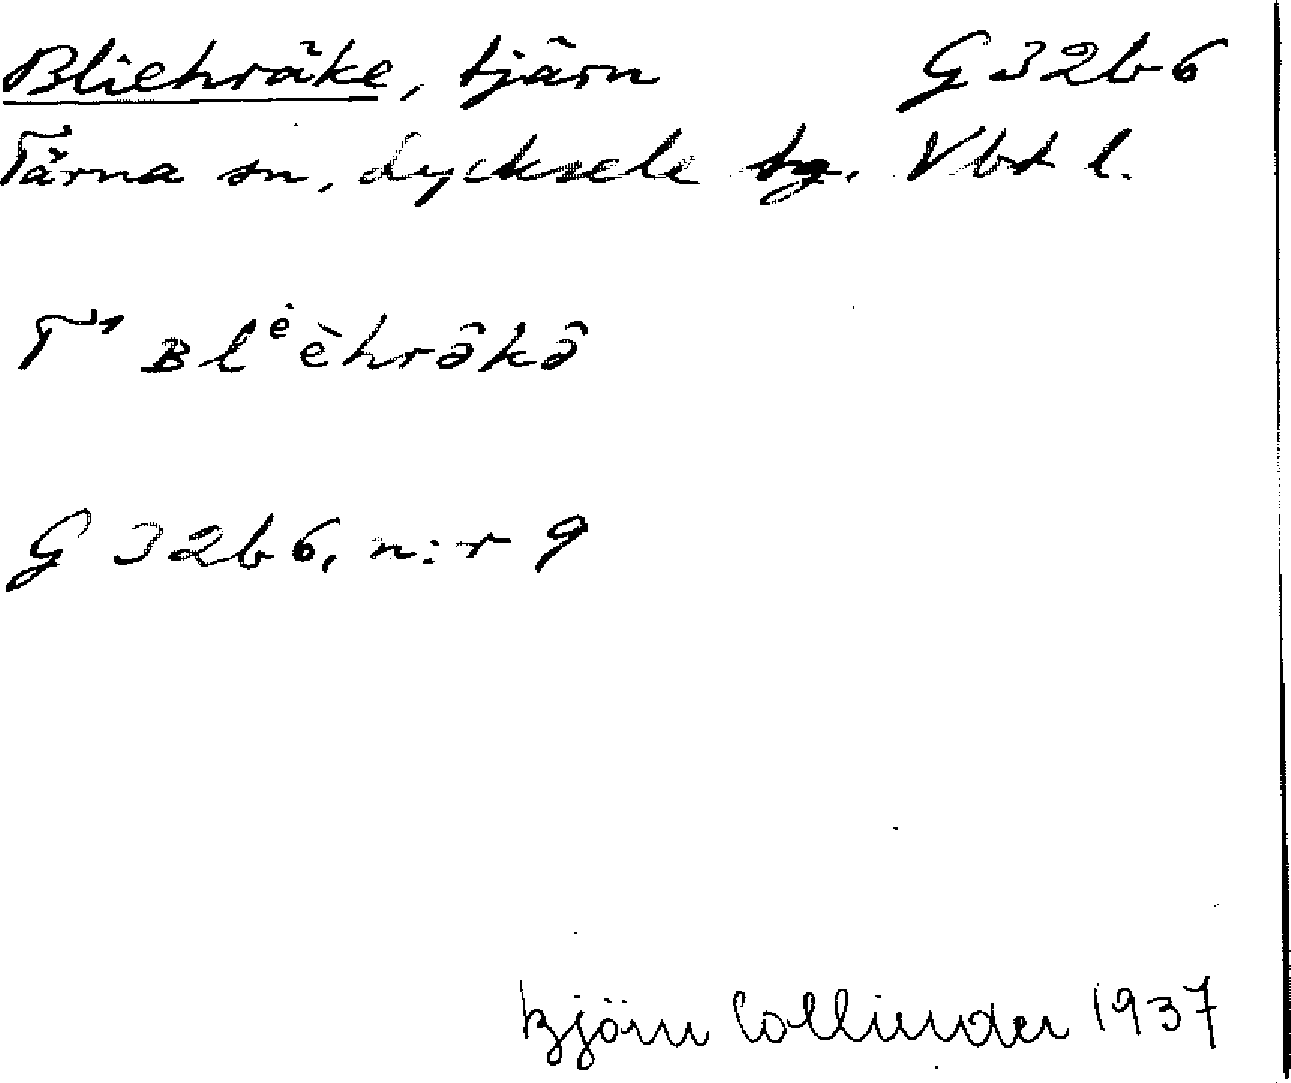 Bliehråke, tjärn G 32 b 6
Tärna sn, Lycksele tg. Vbt l.
T¹ ʙlᵉ̇èhrôkô
G 32 b 6, n:r 9
Björn Collinder 1937